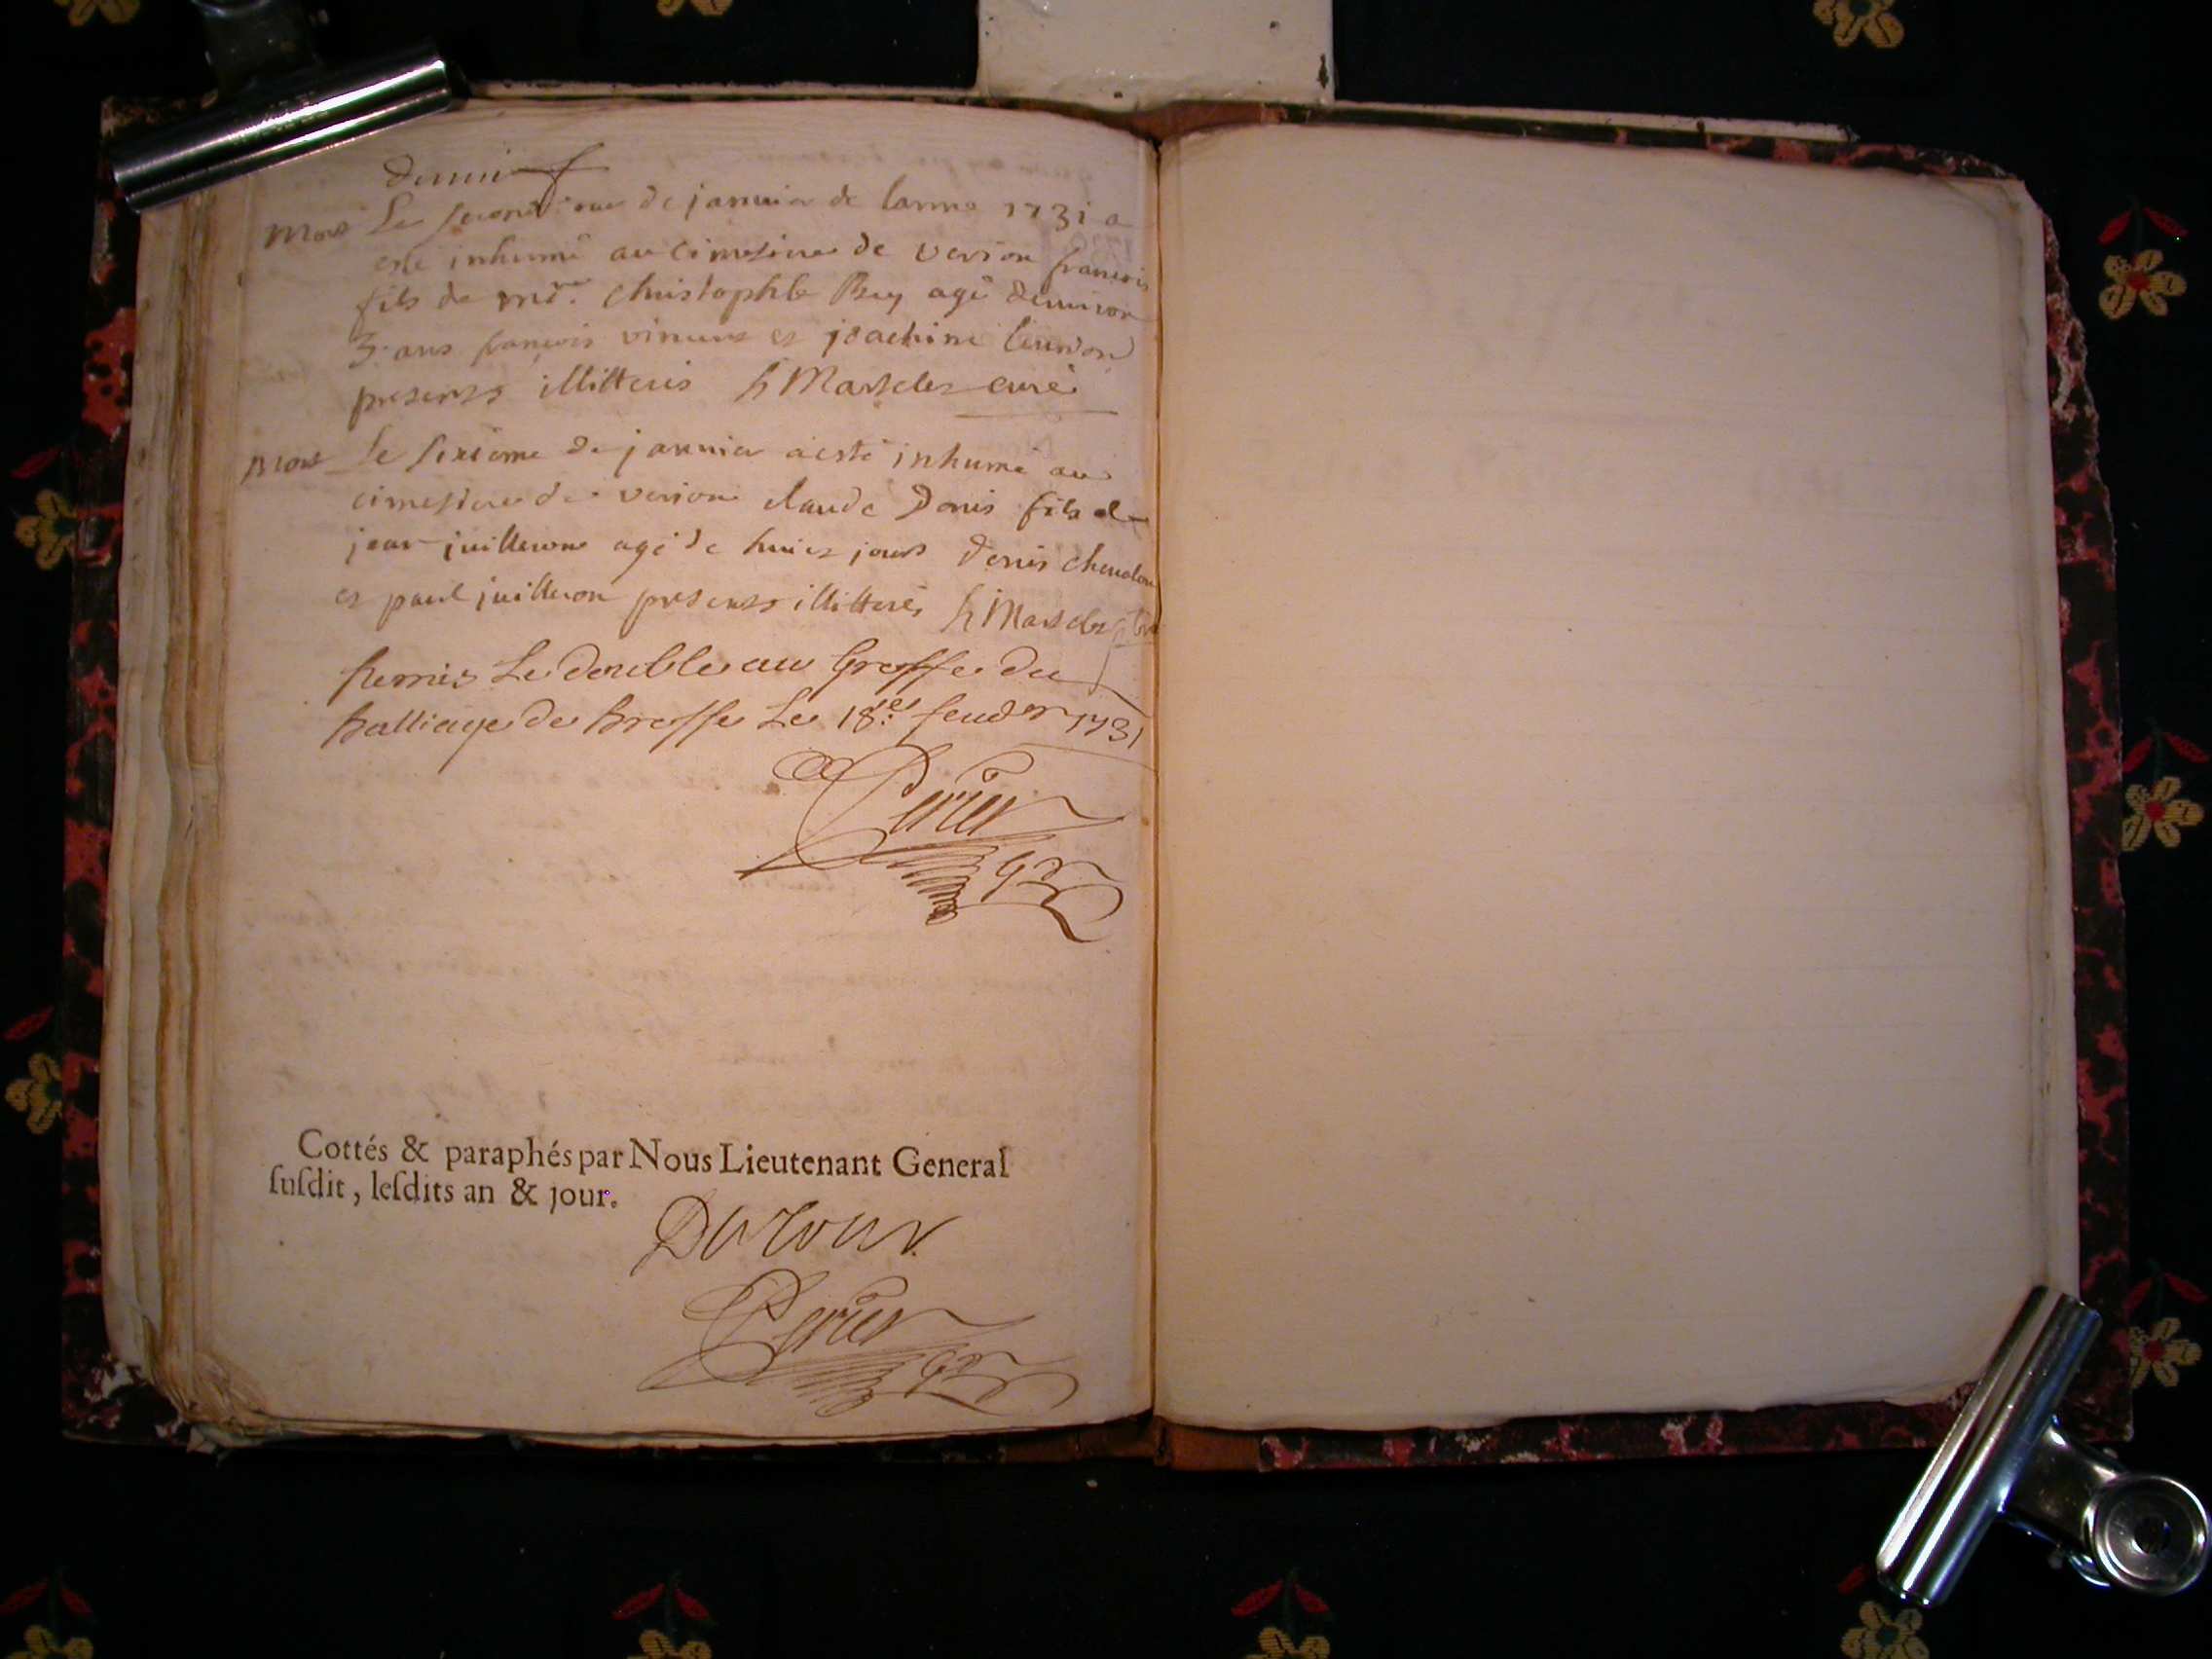 Mort Le second jour de januier de lanne 1731 a
esté inhumé au cimetiere de verion françois
fils de mr. christophle Rey agé denuiron
3 ans françois vincent et joachim
presents illitterés h Marteles curé
Mort Le sixiéme de januier a esté inhumé au
cimestiere de verion claude Denis fils de
jean juilleron agé de huict jours denis cheualon
et paul juilleron presents illitterés h Marteles
Remis Le double au Greffe du
Balliage de Bresse Le 18e. feuder 1731
Perier
Cottés & paraphés par Nous Lieutenant General
ſuſdit, leſdits an & jour.
Perier